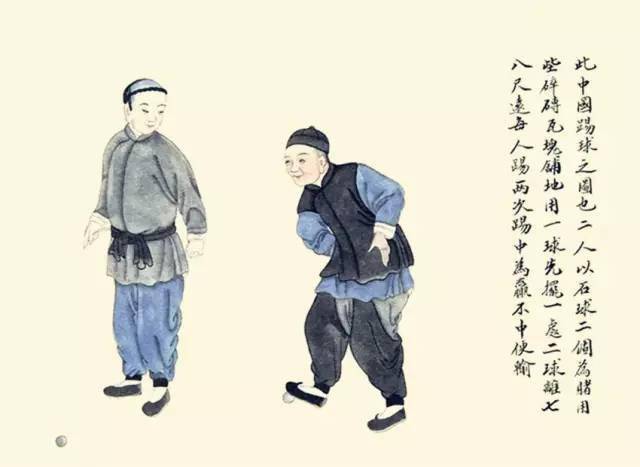 此中國踢球之圖也二人以石球二個為賭用
些碎磚瓦塊舖地用一球先擺一處二球離七
八尺遠每人踢兩次踢中為贏不中便輸